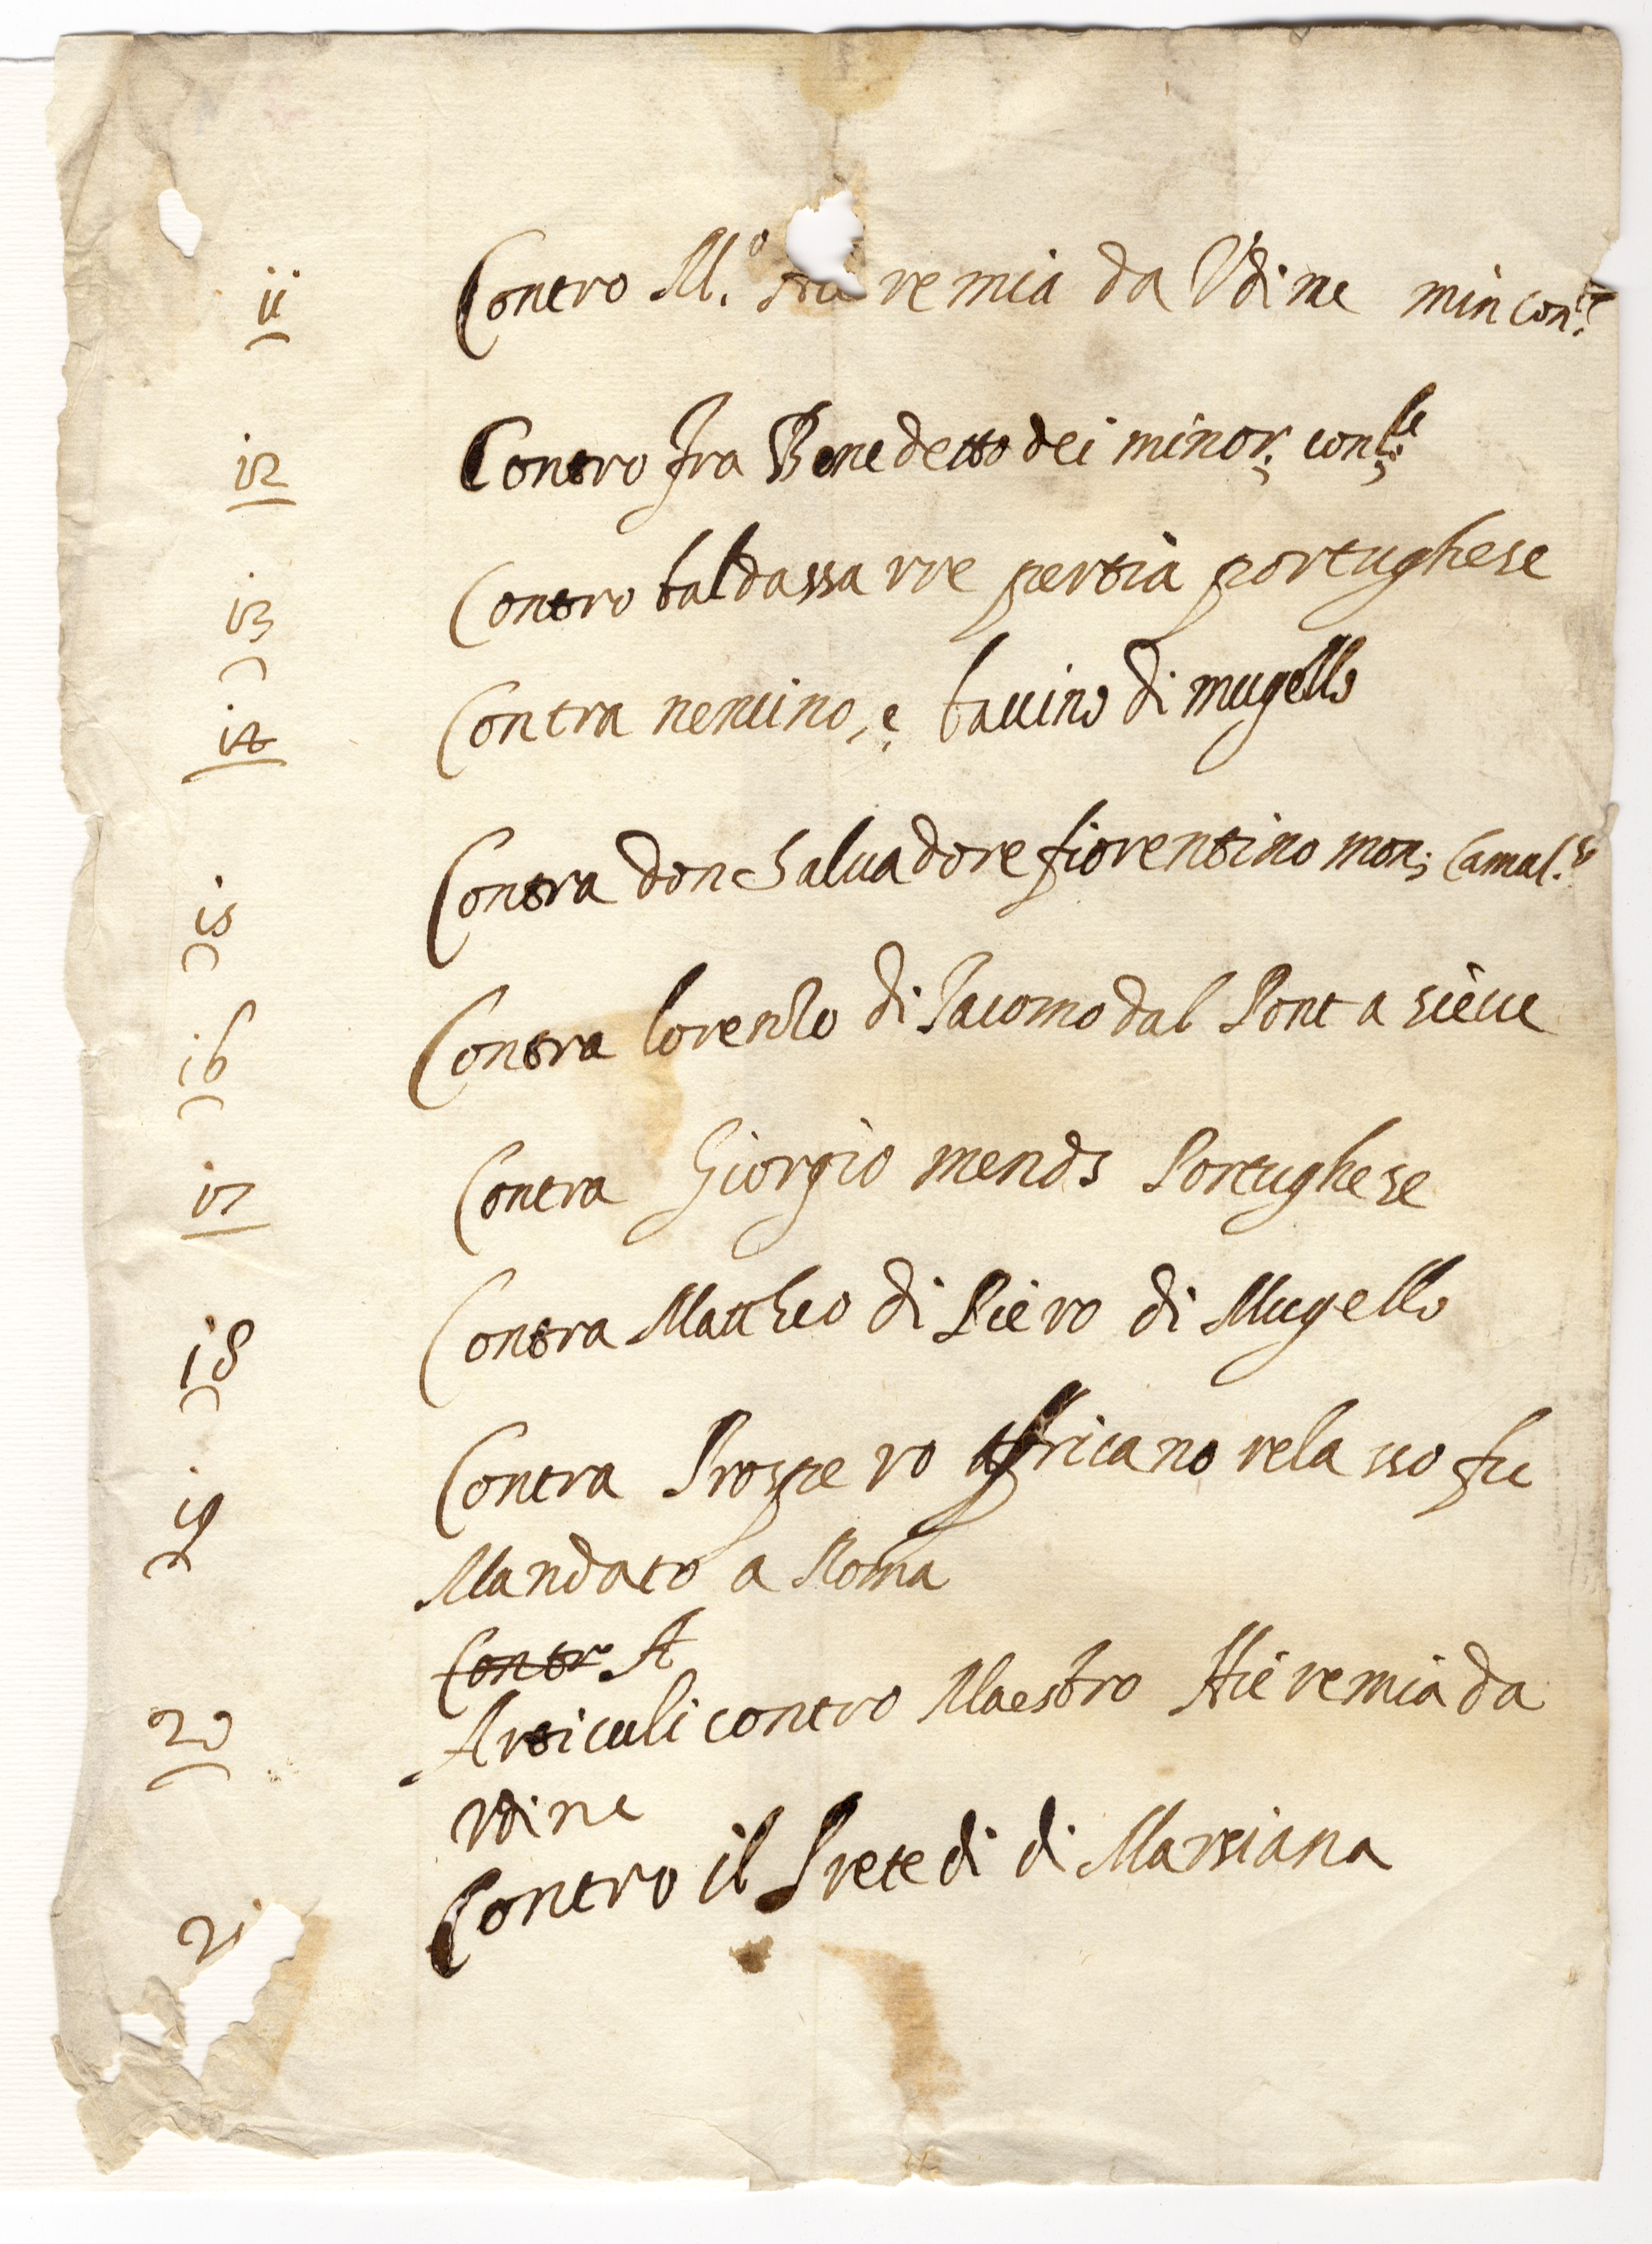 ii Contro M.o Hieremia da Vdine min con.le
i2 Contro fra Benedetto dei minor: con.le
i3 Contro baldassarre pertia portughese
i4 Contra nencino, e bauino di mugello
i5 Contra don Saluadore fiorentino mon: Camal.e
i6 Contra lorenzo di Jacomo dal Pont a sieue
i7 Contra Giorgio mends Portughese
i8 Contra Mattheo di Piero di Mugello
i9 Contra Prospero africano relasso fu
Mandato a Roma
Contr. A
20 Articuli contro Maestro Hieremia da
Vdine
2i Contro il Prete di di Marsiana